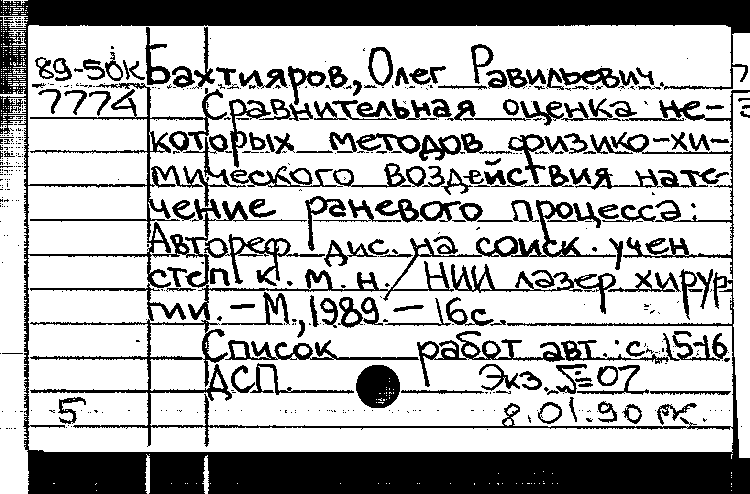 89-50К Бахтияров, Олег Равильевич.
7774 Сравнительная оценка не-
которых методов физико-хи-
мического воздействия на те-
чение раневого процесса:
Автореф. дис. на соиск. учен
степ. к. м. н. / НИИ лазер. хирур-
гии. - М., 1989. - 16с.
Список работ авт.: с. 15-16.
ДСП. Экз. №=07
5 8.01.90